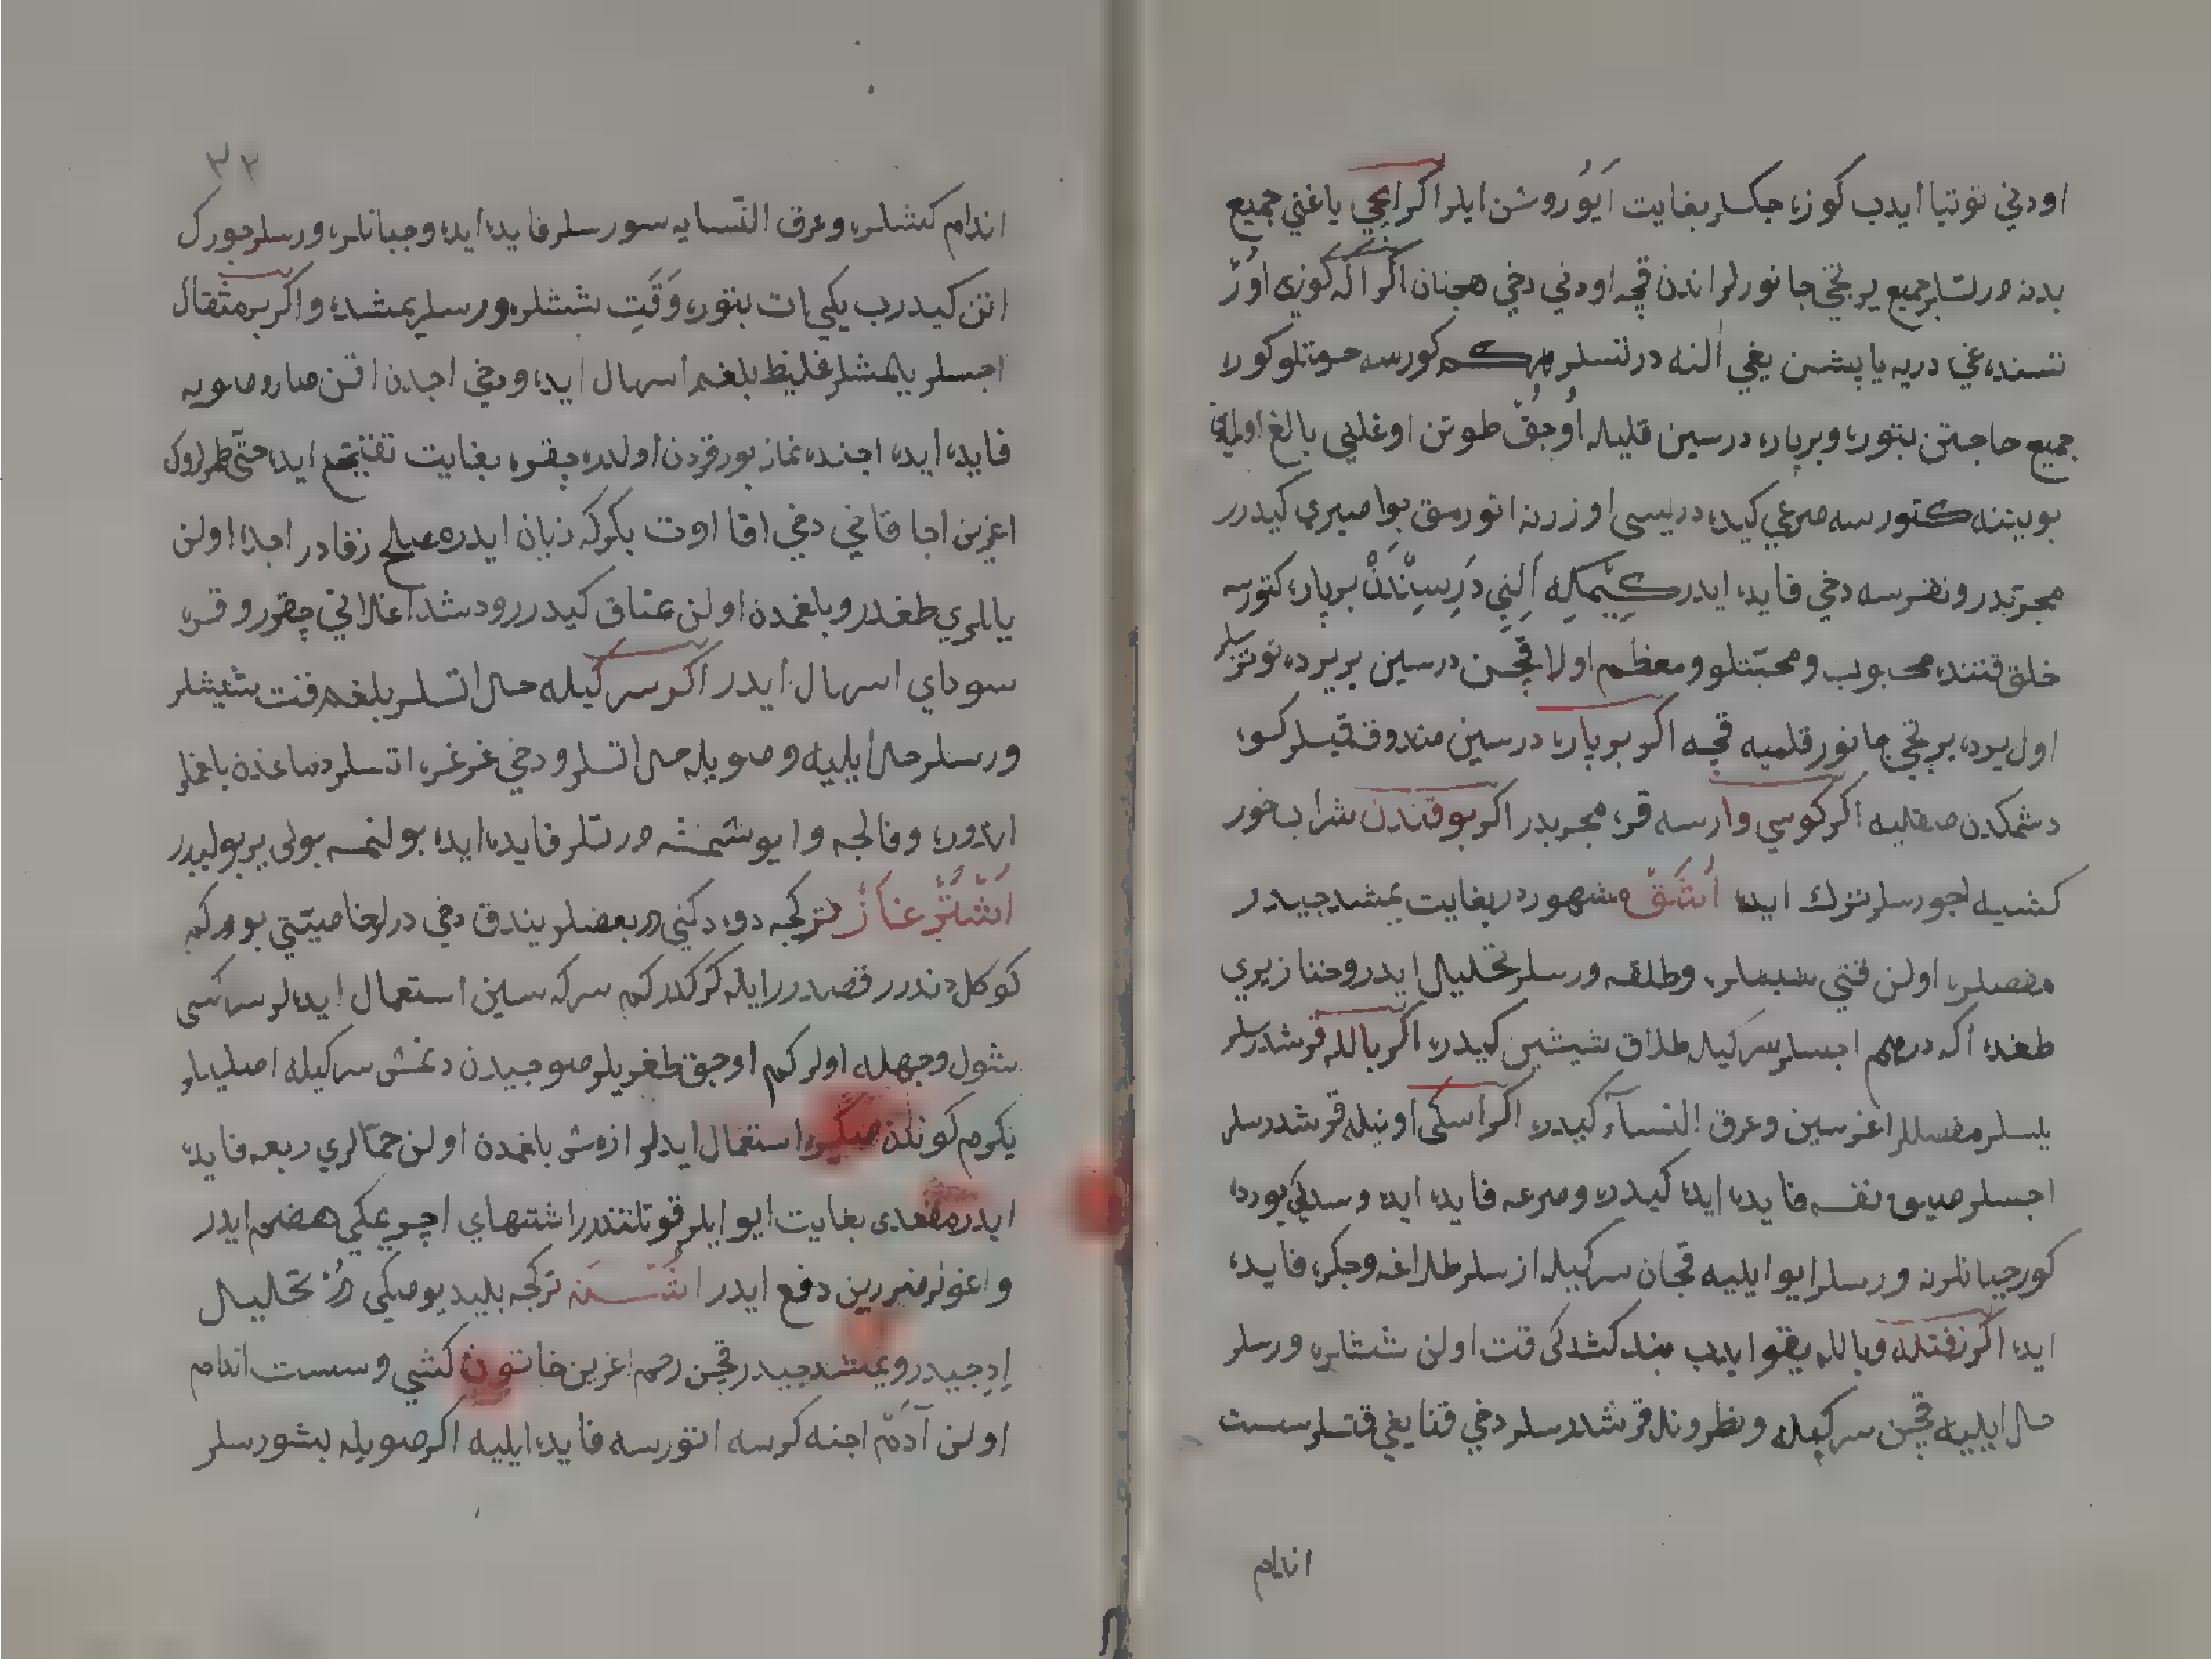 اودني توتيا ايدب كوزه جكسلر بغايت ايو روشن ايلر اكر اعي ياغني جميع
بدنه درتسلر جميع يرتجي جانورلر اندن قچه اودني دخي همچنان اكر اكه كوزي اوز
نسنده غي دريه يابشن يغي النه درتسلر هركم كورسه حرمتلو كوره
جميع حاجتن بتوره وبرپاره درسين قليله اوجق طوتن اوغلني بالغ اولمان
بويننه كتورسه صرعي كيده دريسي اوزرنه اتورمق بواصيري كيدرر
مجربدر ونقرسه دخي فايده ايدر كيمكه الني درسندن برپاره كتورسه
خلق قتنده محبوب ومحبتلو ومعظم اولا قچن درسين بر يرده توتزرسلر
اول يرده يرتجي جانور قلميه قچه اكر برپاره درسين صندوقه قيسلر كوه
دشمكدن صقليه اكر كوسي وارسه قره مجربدر اكر بوقندن شراب خور
كشيه اجورسلر ترك ايده اشق مشهوردر بغايت يمشدجيدر
مفصلره اولن قتي شيشلره وطلقه ورسلر تحليل ايدر وخنازيري
طغده اكه درهم اجسلر سركيله طلاق شيشين كيدره اكر بالله قرشدرسلر
يلسلر مفصللر اغرسين وعرق النسآء كيدره اكر اسكي اونيله قرشدرسلر
اجسلر ضيق نفسه فايده ايده كيدره وصرعه فايده ايده وسدكي يوردا
كورجبانلرنه ورسلر ايو ايليه قچان سركيله ازسلر طلاغه وجكره فايده
ايده اكر زفتله وبالله يقو ايدب بندكشدكي قت اولن ششلره ورسلر
حل ايليه قچن سركيله ونطرونله قرشدرسلر دخي قنايغي قتسلر سست
اندام
٣٢
اندام كشلره وعرق النسايه سورسلر فايده ايده وجبانلره ورسلر چورك
اتن كيدرب يكي ات بتوره وقت ششلره ورسلر يمشده واكر بر مثقال
اجسلر يلمشلر غليظ بلغم اسهال ايده ودخي اجدن اقن صارو صويه
فايده ايده اجنده نماز بورقردن اولدره چقره بغايت تفتيح ايده حتى طمرلرك
اغزين اجا قاني دخي اقا اوت بكركه زيان ايدر مصلح زفادر اجده اولن
ياللري طغدر وبلغمدن اولن عتاق كيدرر ودشد اغلاني چقرر وقره
سوداي اسهال ايدر اكر سركيله حل اتسلر بلغم قت شيشلر
ورسلر حل ايليه وصويله حل اتسلر ودخي غرغره اتسلر دماغذه بلغملر
اندوره وفالجه وايوشمشه درتلر فايده ايده بولنمسه بولي ير بوليدر
اشترغاز تركجه دوه دكني در بعضلر يندق دخي درلر خاصيتي بودركم
كوكل دندرر قصدرر ايله كركدركم سركه سين استعمال ايدلر سركسي
شول وجهله اولر كم اوجق طغريلر صوجيدن دغمش سركيله اصليلر
يكرم كوندن صكره استعمال ايدلر ازمش بلغمدن اولن حمالري ربعه فايده
ايدر مقعدي بغايت ايو ايلر قوتلندرر اشتهاي اچر يمكي هضم ايدر
واغولر ضررين دفع ايدر اشنه تركجه پليد يوصكي در تحليل
اد جيدر ويمشدجيدر قچن رحم اغزين خاتون كشي وسست اندام
اولن آدم اجنه كرسه اتورسه فايده ايليه اكر صويله بشورسلر